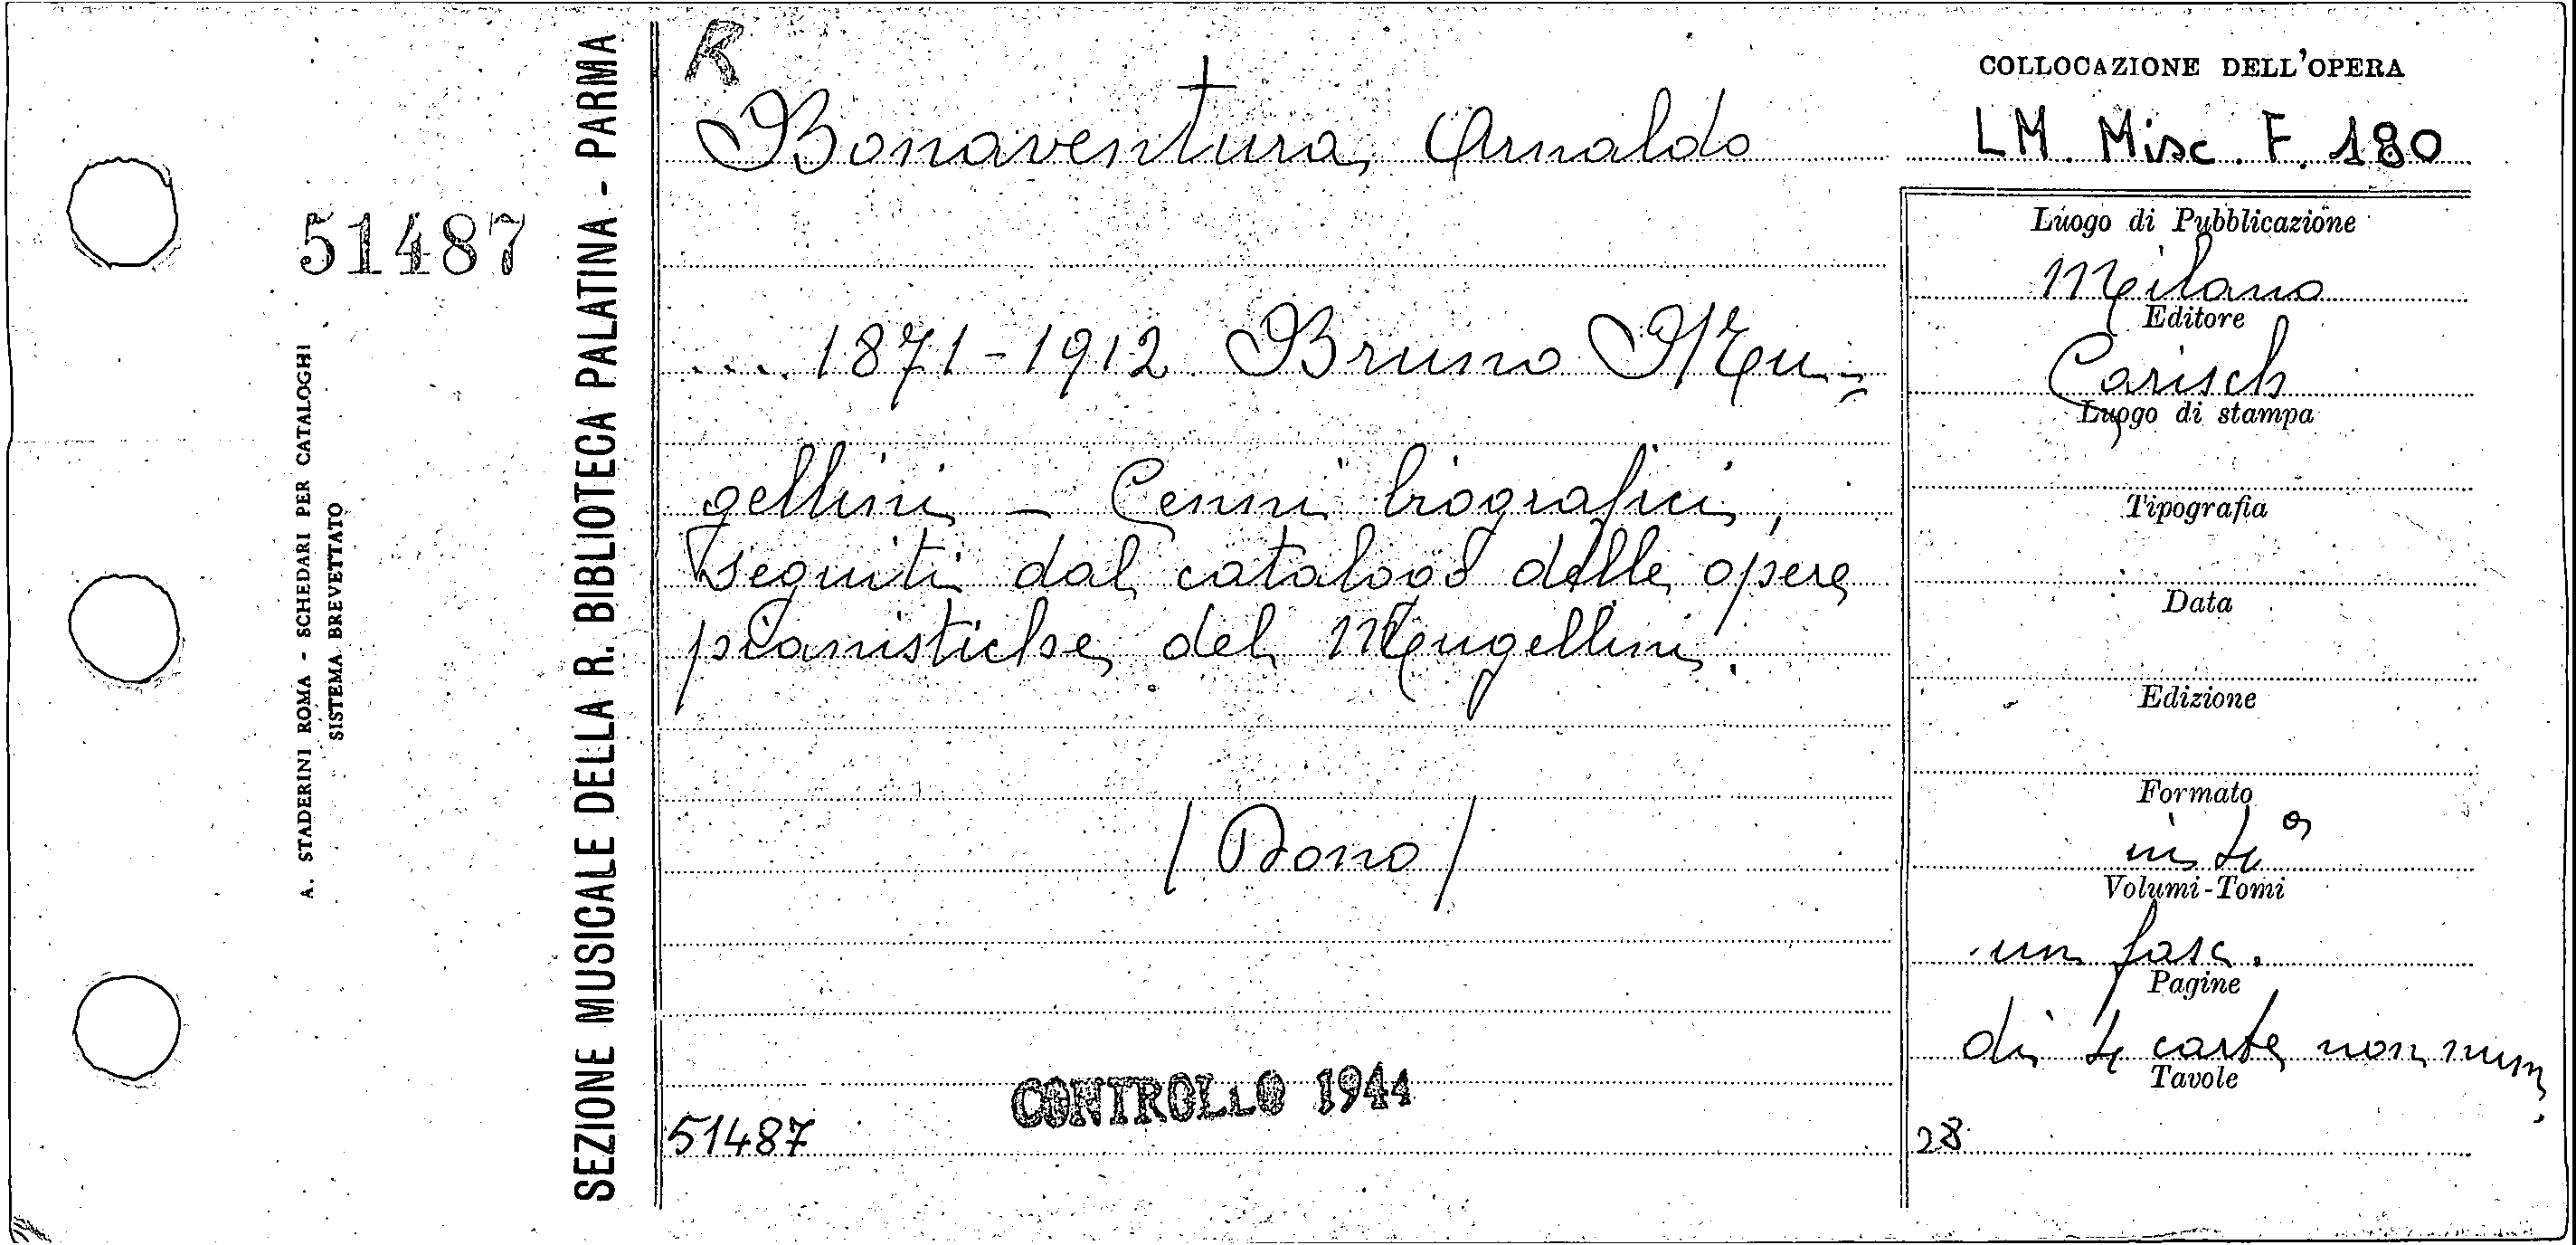 R
Bonaventura, Arnaldo
.... 1871-1912. Bruno Mu-
gellini - Cenni biografici,
seguiti dal catalogo delle opere
pianistiche del Mugellini.
/Dono/
CONTROLLO 1944
51487
COLLOCAZIONE DELL'OPERA
LM. Misc. F. 180
Luogo di Pubblicazione
Milano
Editore
Carisch
Luogo di stampa
Tipografia
Data
Edizione
Formato
in 4°
Volumi-Tomi
un fasc.
Pagine
di 4 carte non num.
Tavole
28
51487
A. STADERINI ROMA - SCHEDARI PER CATALOGHI
SISTEMA BREVETTATO
SEZIONE MUSICALE DELLA R. BIBLIOTECA PALATINA - PARMA